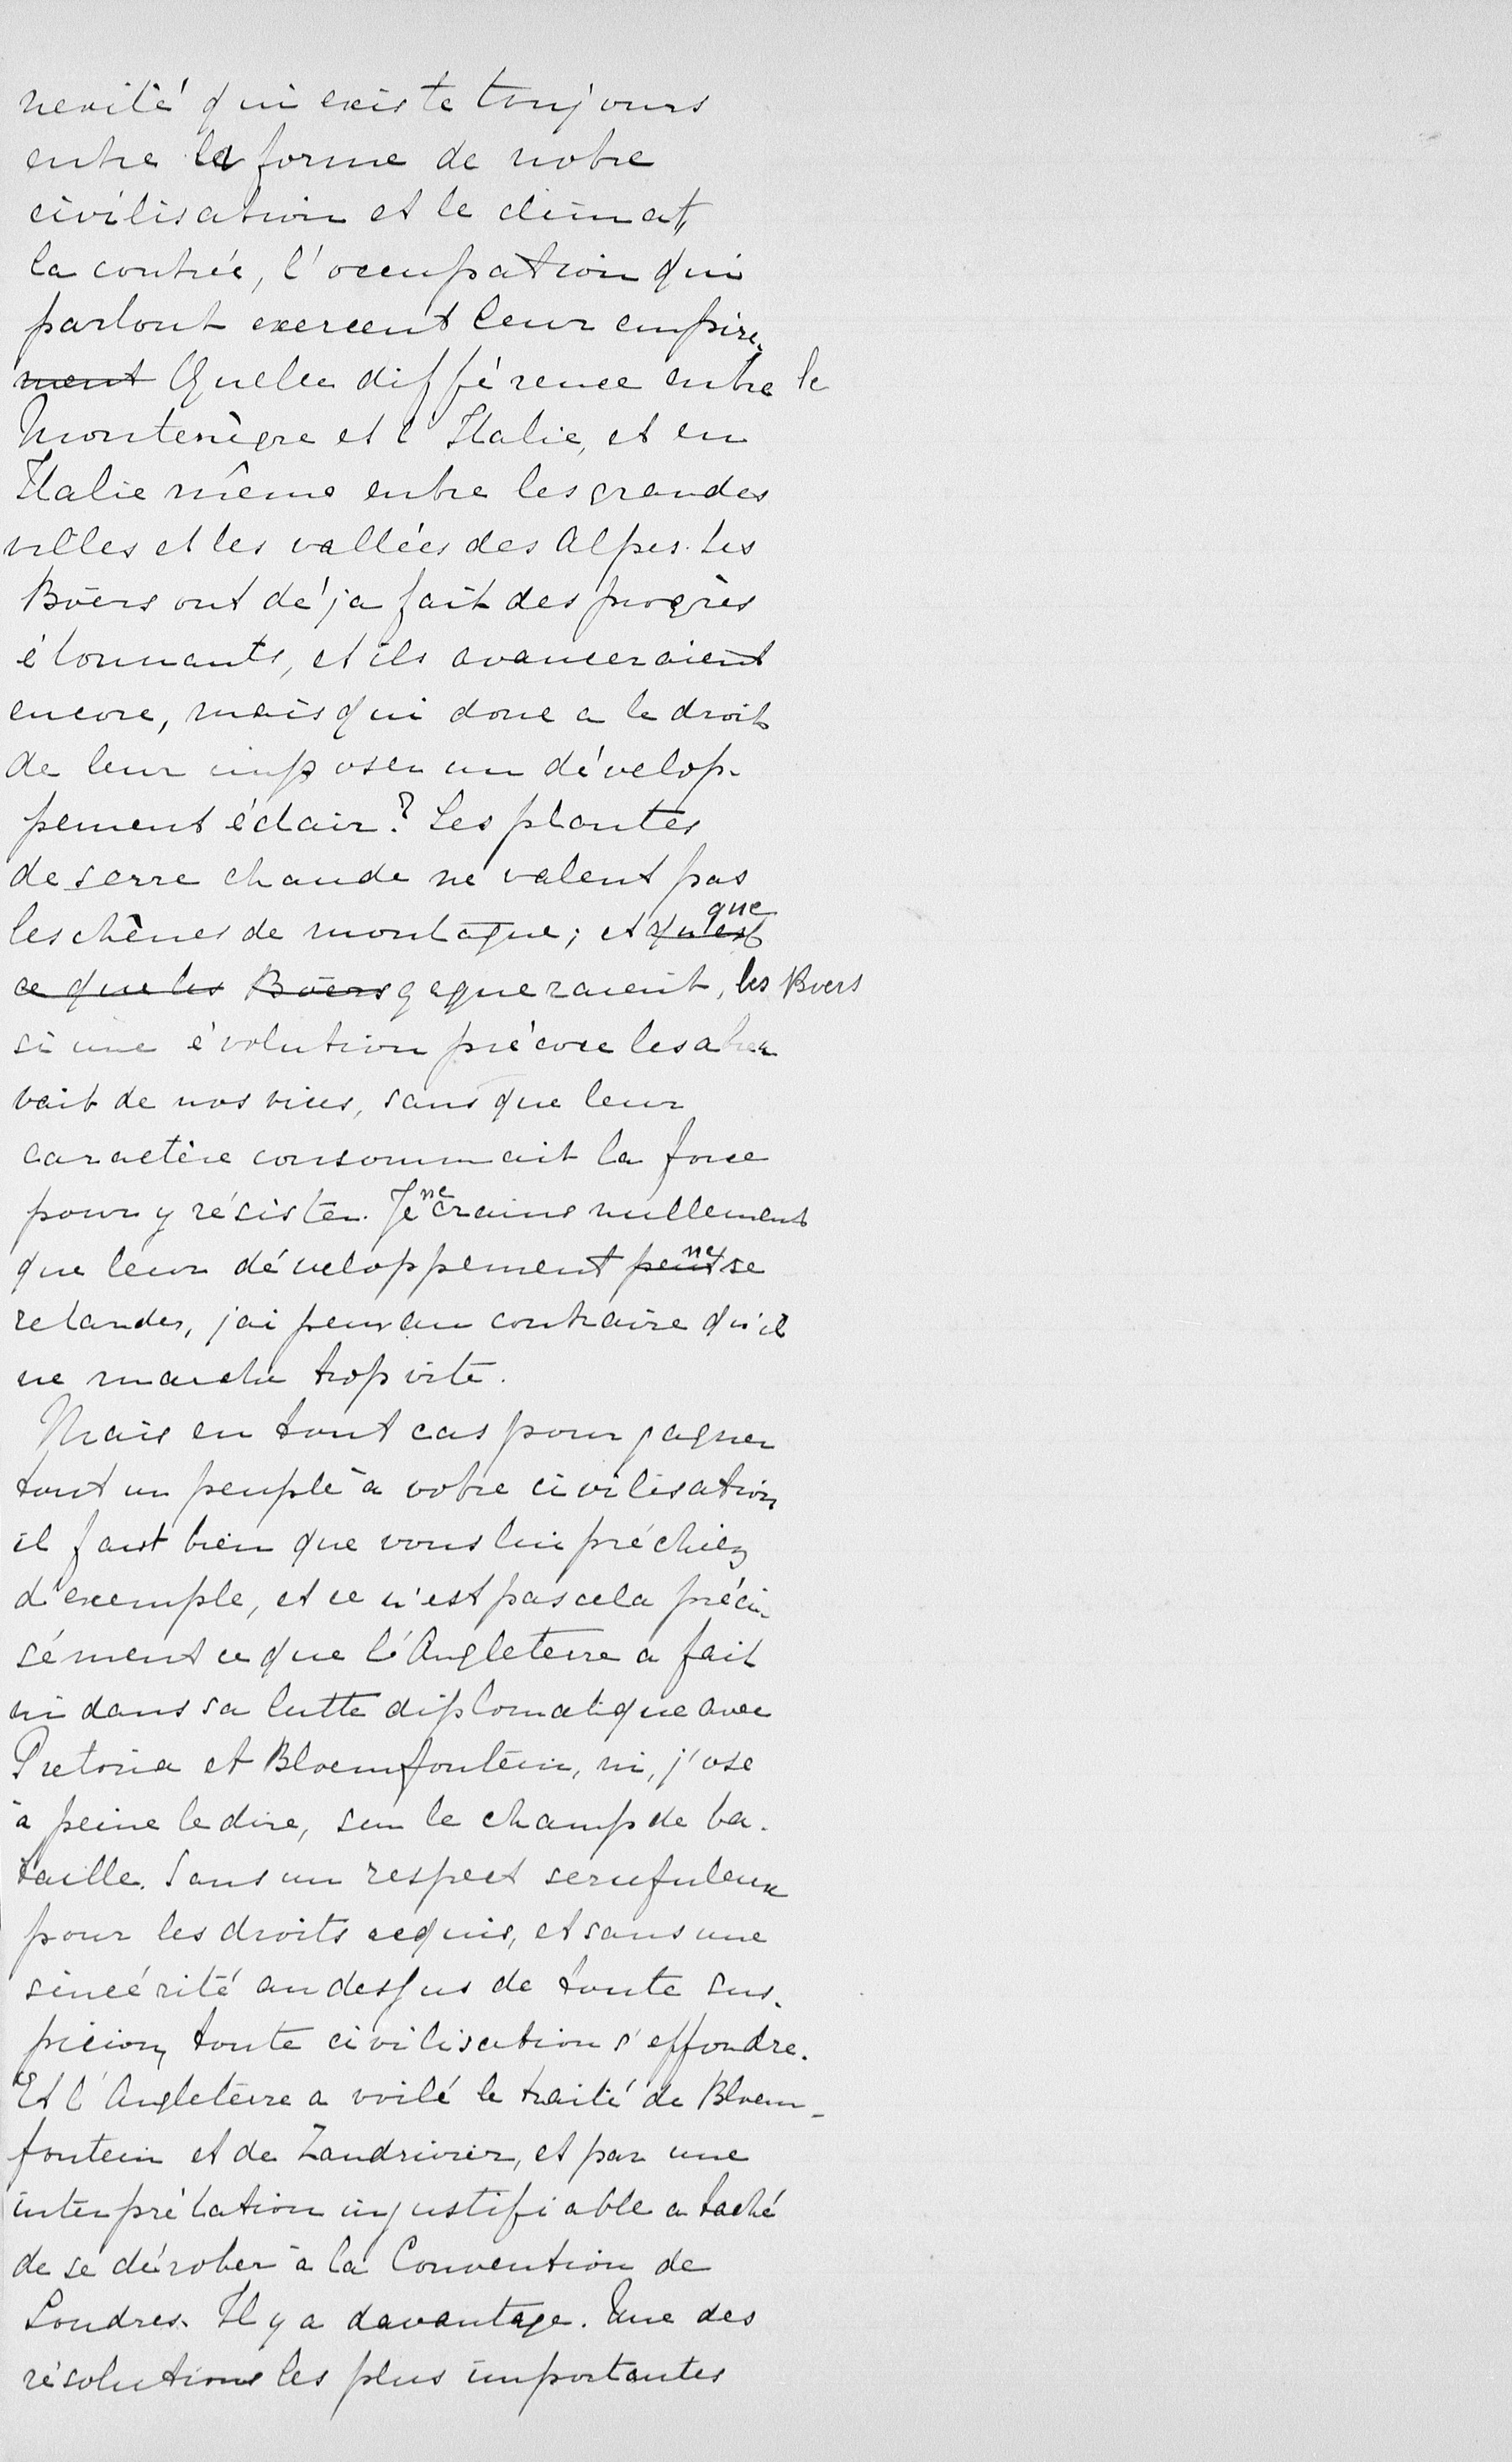 nexité qui existe toujours
entre la forme de notre
civilisation et le climat,
la contrée, l'occupation qui
partout exercent leur empire.
ment Quelle différence entre le
Montenègre et l'Italie, et en
Italie même entre les grandes
villes et les vallées des Alpes. Les
Boërs ont déja fait des progrès
étonnants, et ils avanceraient
encore, mais qui donc a le droit
de leur imposer un dévelop-
pement éclair? Les plantes
de serre chaude ne valent pas
les chênes de montagne; et qu'est que
ce que les Boërs gagneraient, les Boers
si une évolution précoce les abreu
vait de nos vices, sans que leur
caractère consommait la force
pour y résister. Je ne crains nullement
que leur développement peut ne se
retarder, j'ai peur au contraire qu'il
ne marche trop vite.
Mais en tout cas pour gagner
tout un peuple à votre civilisation
il faut bien que vous lui préchiez
d'exemple, et ce n'est pas cela préci-
sément ce que l'Angleterre a fait
ni dans sa lutte diplomatique avec
Pretoria et Bloemfontein, ni, j'ose
à peine le dire, sur le champ de ba-
taille. Sans un respect scrupuleux
pour les droits acquis, et sans une
sincérité au dessus de toute sus-
picion, toute civilisation s'effondre.
Et l'Angleterre a violé le traité de Bloem-
fontein et de Zandrivier, et par une
interprétation injustifiable a taché
de se dérober à la Convention de
Londres. Il y a davantage. Une des
résolutions les plus importantes